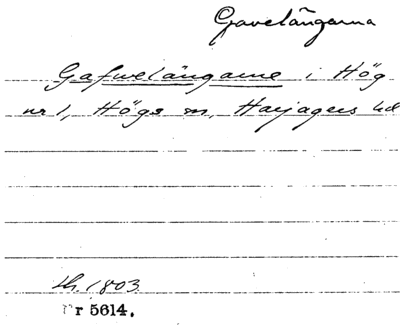 Gavelängarna
Gafwelängarne i Hög
nr 1, Högs sn, Harjagers hd
sk. 1803.
Nr 5614.